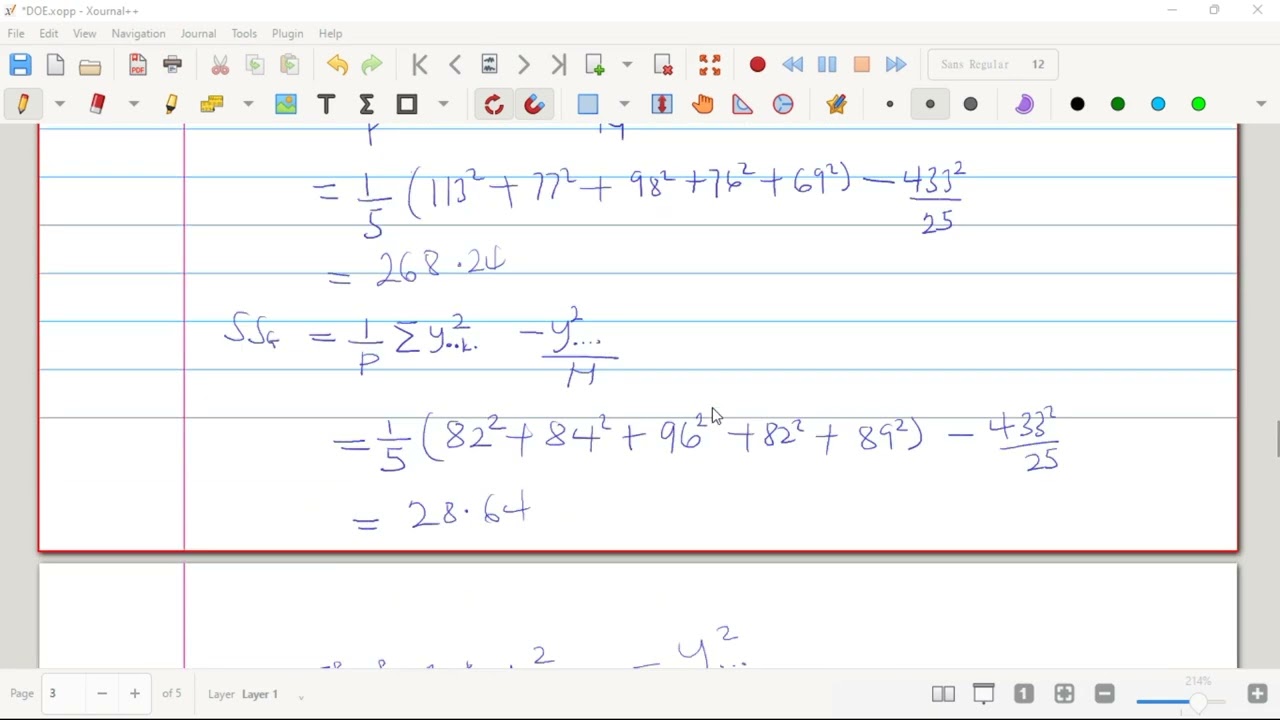 *DOE.xopp - Xournal++
File Edit View Navigation Journal Tools Plugin Help
Sans Regular 12
= 1/5 (113² + 77² + 98² + 76² + 69²) - 433²/25
= 268.24
SS_G = 1/P Σ y²..k. - y²..../N
= 1/5 (82² + 84² + 96² + 82² + 89²) - 433²/25
= 28.64
- y²...
Page 3 of 5 Layer Layer 1 214%